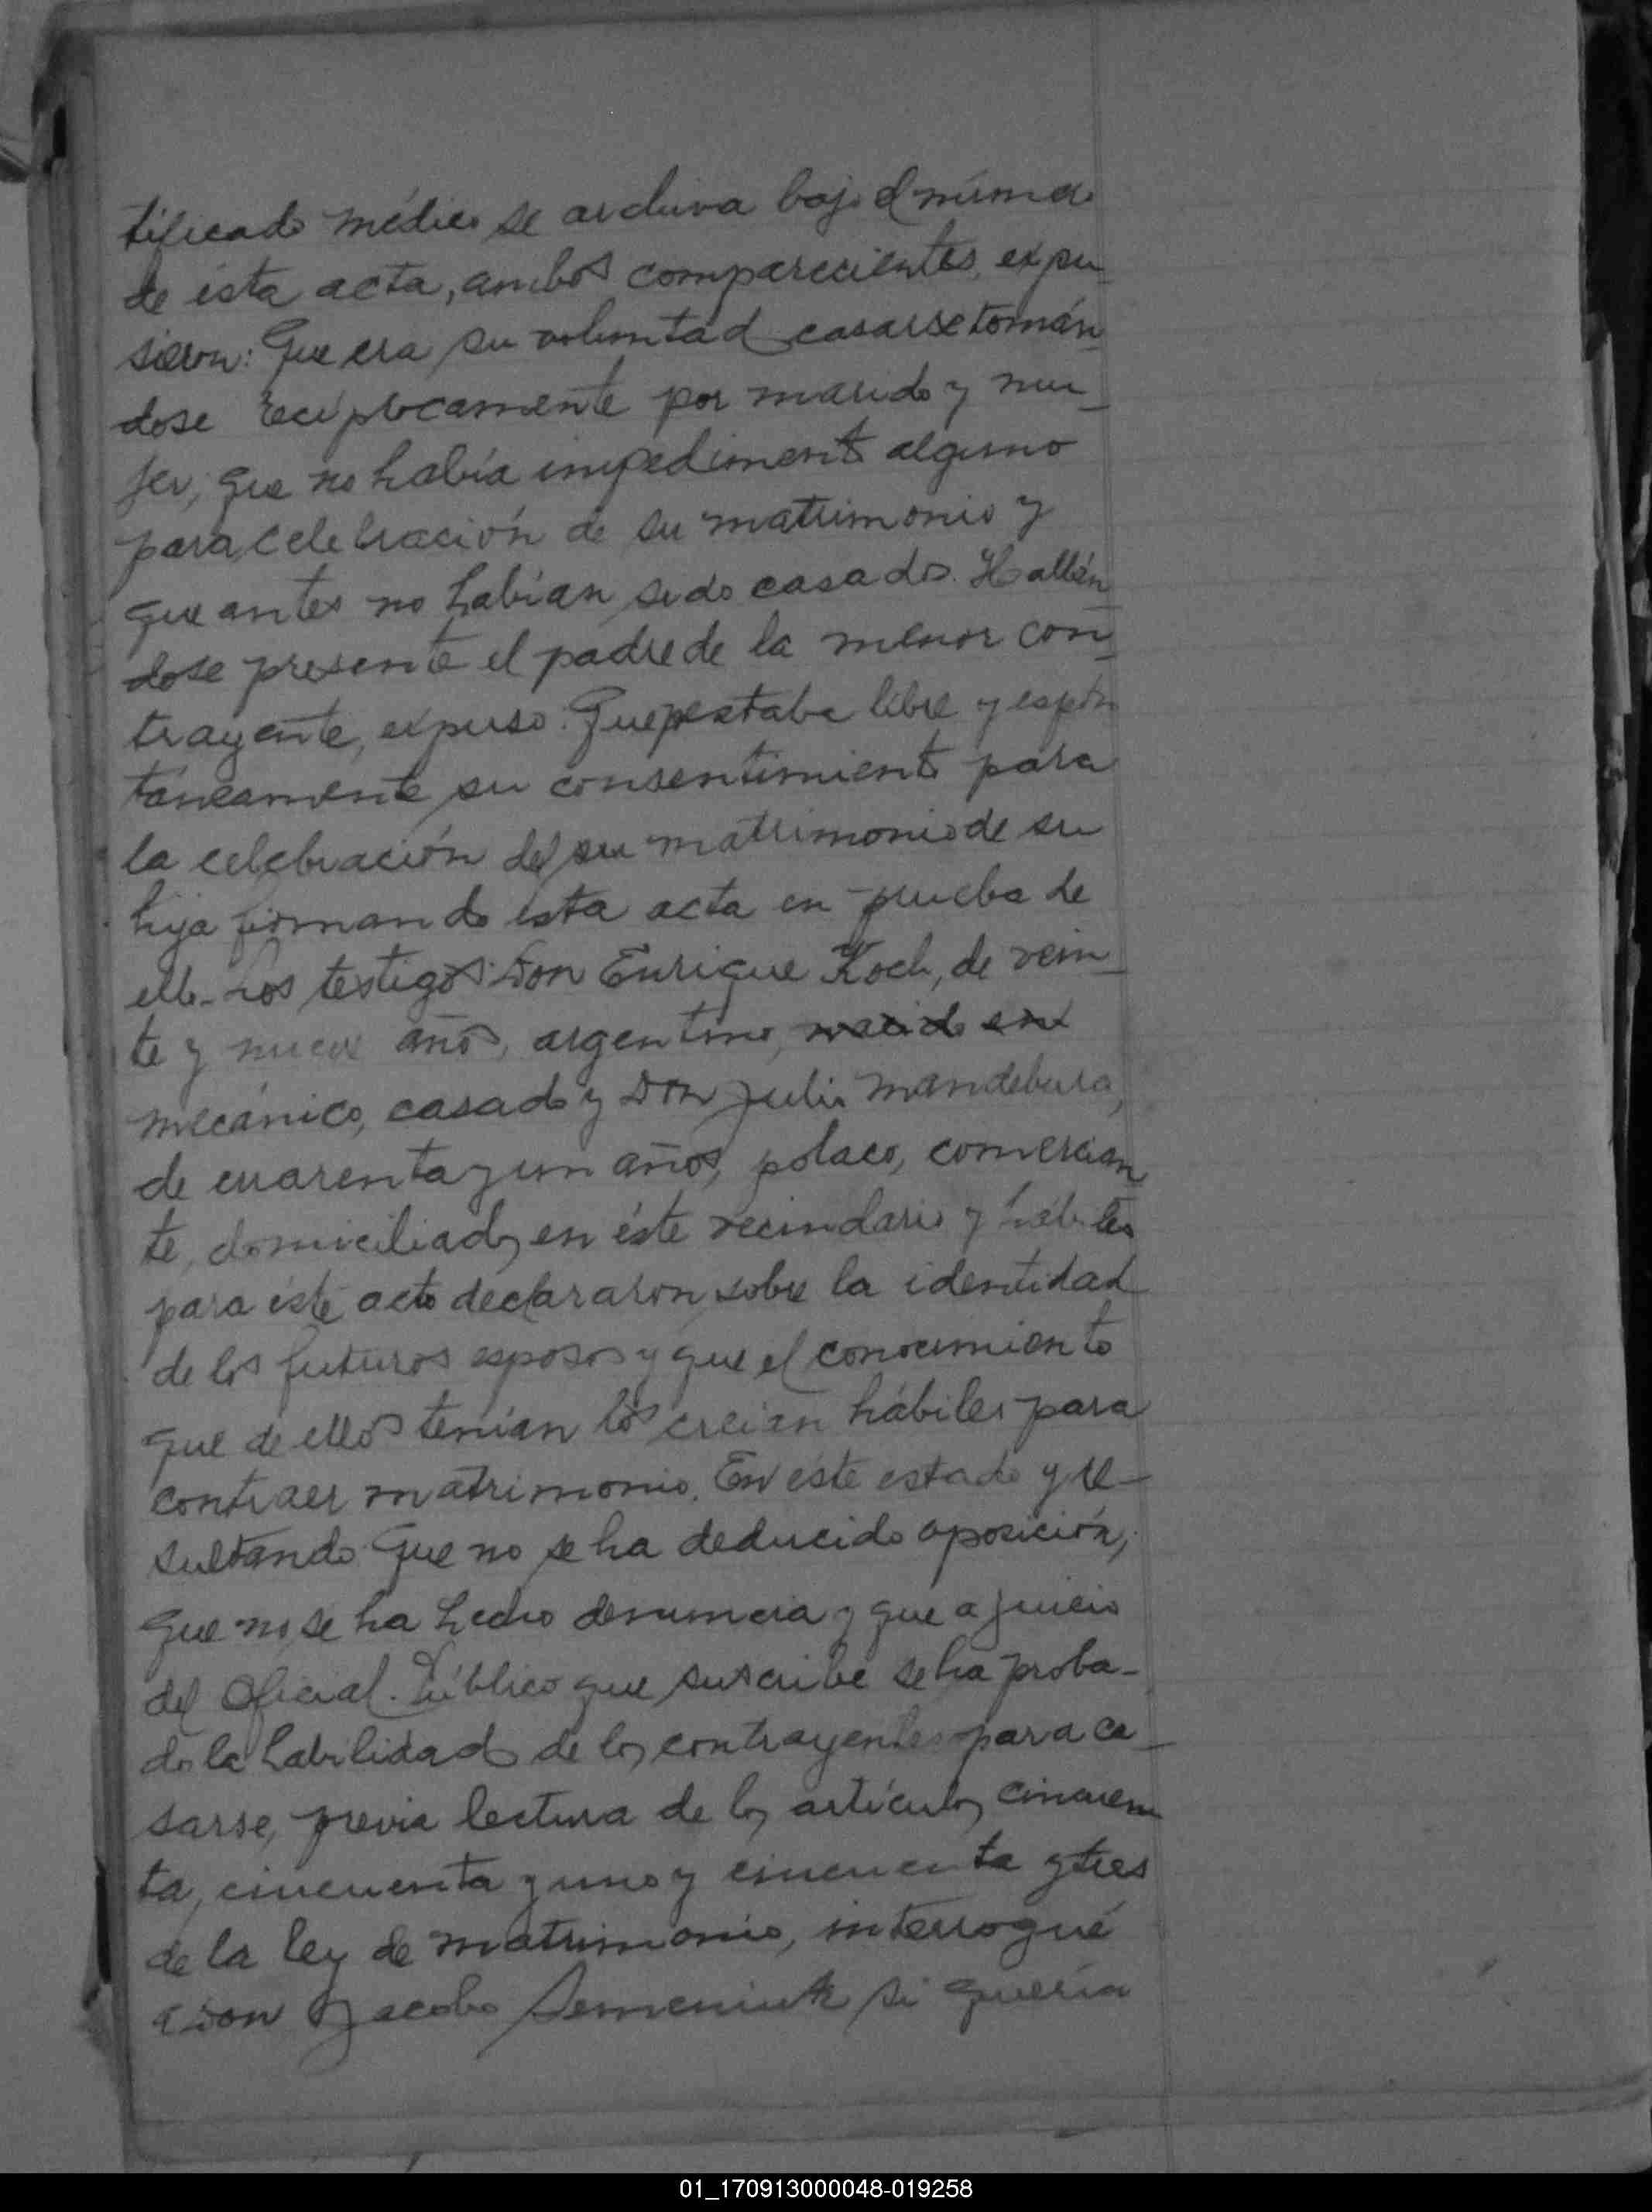 tificado médico se archiva bajo el número
de ésta acta, ambos comparecientes, expu_
sieron: Que era su voluntad casarse tomán_
dose recíprocamente por marido y mu_
jer; que no había impedimento alguno
para celebración de su matrimonio y
que antes no habían sido casados. Hallán_
dose presente el padre de la menor con_
trayente, expuso: Que prestaba libre y espon
táneamente su consentimiento para
la celebración del su matrimonio de su
hija firmando ésta acta en prueba de
ello. Los testigos: Don Enrique Koch, de vein_
te y nueve años, argentino, nacido en
mecánico, casado y Don Julio Mandebura,
de cuarenta y un años, polaco, comercian
te, domiciliados en éste vecindario y hábiles
para éste acto declararon sobre la identidad
de los futuros esposos y que el conocimiento
que de ellos tenían los creían hábiles para
contraer matrimonio. En éste estado y re-
sultando: Que no se ha deducido oposición;
que no se ha hecho denuncia y que a juicio
del Oficial Público que suscribe se ha proba-
do la habilidad de los contrayentes para ca_
sarse, previa lectura de los artículos cincuen
ta, cincuenta y uno y cincuenta y tres
de la ley de matrimonio, interrogué
a Don Jacobo Semeniuk si quería
01_170913000048-019258